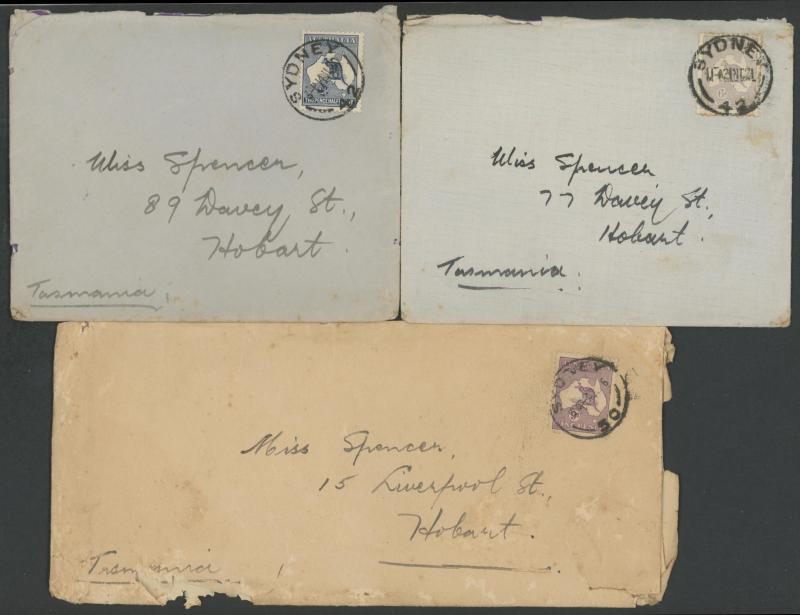 AUSTRALIA
SYDNEY
42
Miss Spencer,
89 Davey St.,
Hobart.
Tasmania.
SYDNEY
42
Miss Spencer
77 Davey St.,
Hobart.
Tasmania.
SYDNEY
50
Miss Spencer,
15 Liverpool St.,
Hobart.
Tasmania